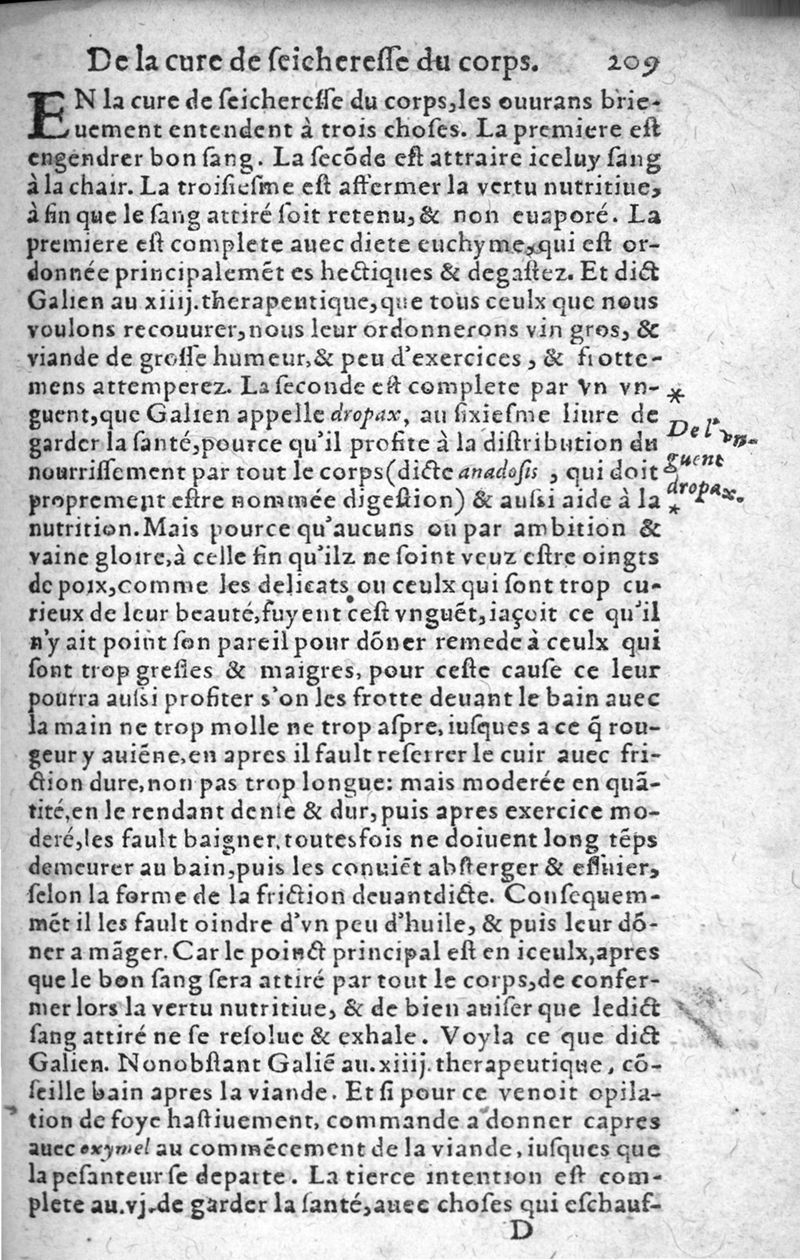 De la cure de ſeichereſſe du corps. 209
EN la cure de ſeichereſſe du corps,les ouurans brie-
uement entendent à trois choſes. La premiere eſt
engendrer bon ſang. La ſecõde eſt attraire iceluy ſang
à la chair. La troiſieſme eſt affermer la vertu nutritiue,
à fin que le ſang attiré ſoit retenu,& non euaporé. La
premiere eſt complete auec diete euchyme,qui eſt or-
donnée principalemẽt es hectiques & degaſtez. Et dict
Galien au xiiij.therapeutique,que tous ceulx que nous
voulons recouurer,nous leur ordonnerons vin gros, &
viande de groſſe humeur,& peu d'exercices, & frotte-
mens attemperez. La ſeconde eſt complete par vn vn-
guent,que Galien appelle dropax, au ſixieſme liure de
garder la ſanté,pource qu'il profite à la diſtribution du
nourriſſement par tout le corps(dicte anadoſis , qui doit
proprement eſtre nommée digeſtion) & auſsi aide à la
nutrition.Mais pource qu'aucuns ou par ambition &
vaine gloire,à celle fin qu'ilz ne ſoint veuz eſtre oingts
de poix,comme les delicats ou ceulx qui ſont trop cu-
rieux de leur beauté,fuyent ceſt vnguẽt,iaçoit ce qu'il
n'y ait point ſon pareil pour dõner remede à ceulx qui
ſont trop greſles & maigres, pour ceſte cauſe ce leur
pourra auſsi profiter s'on les frotte deuant le bain auec
la main ne trop molle ne trop aſpre,iuſques a ce q̃ rou-
geur y auiẽne,en apres il fault reſerrer le cuir auec fri-
ction dure,non pas trop longue: mais moderée en quã-
tité,en le rendant denſe & dur,puis apres exercice mo-
deré,les fault baigner,toutesfois ne doiuent long tẽps
demeurer au bain,puis les conuiẽt abſterger & eſſuier,
ſelon la forme de la friction deuantdicte. Conſequem-
mẽt il les fault oindre d'vn peu d'huile, & puis leur dõ-
ner a mãger. Car le poinct principal eſt en iceulx,apres
que le bon ſang ſera attiré par tout le corps,de confer-
mer lors la vertu nutritiue, & de bien auiſer que ledict
ſang attiré ne ſe reſolue & exhale. Voyla ce que dict
Galien. Nonobſtant Galiẽ au.xiiij.therapeutique, cõ-
ſeille bain apres la viande. Et ſi pour ce venoit opila-
tion de foye haſtiuement, commande a donner capres
auec oxymel au commẽcement de la viande,iuſques que
la peſanteur ſe departe. La tierce intention eſt com-
plete au.vj.de garder la ſanté,auec choſes qui eſchauf-
D
*
De l'vn-
guent
dropax.
*